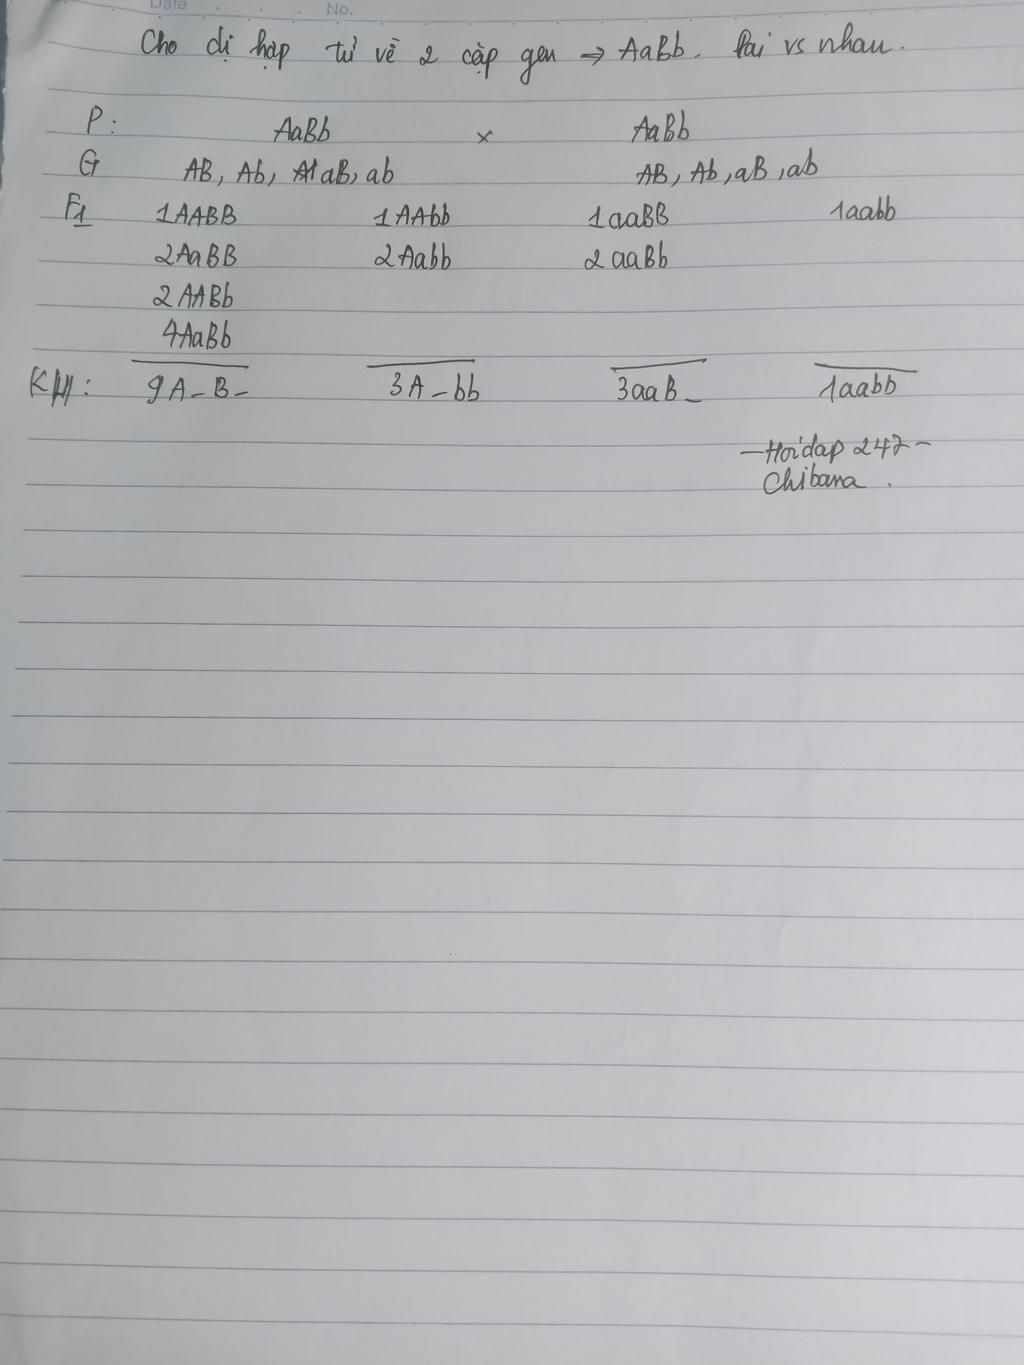 Date . . . No.
Cho dị hợp tử về 2 cặp gen => AaBb. lai vs nhau.
P: AaBb x AaBb
G AB, Ab, aB, ab AB, Ab, aB, ab
F1 1AABB 1AAbb 1aaBB 1aabb
2AaBB 2Aabb 2aaBb
2AABb
4AaBb
KH: 9A-B- 3A-bb 3aaB- 1aabb
- Hoidap 247 -
Chibana.